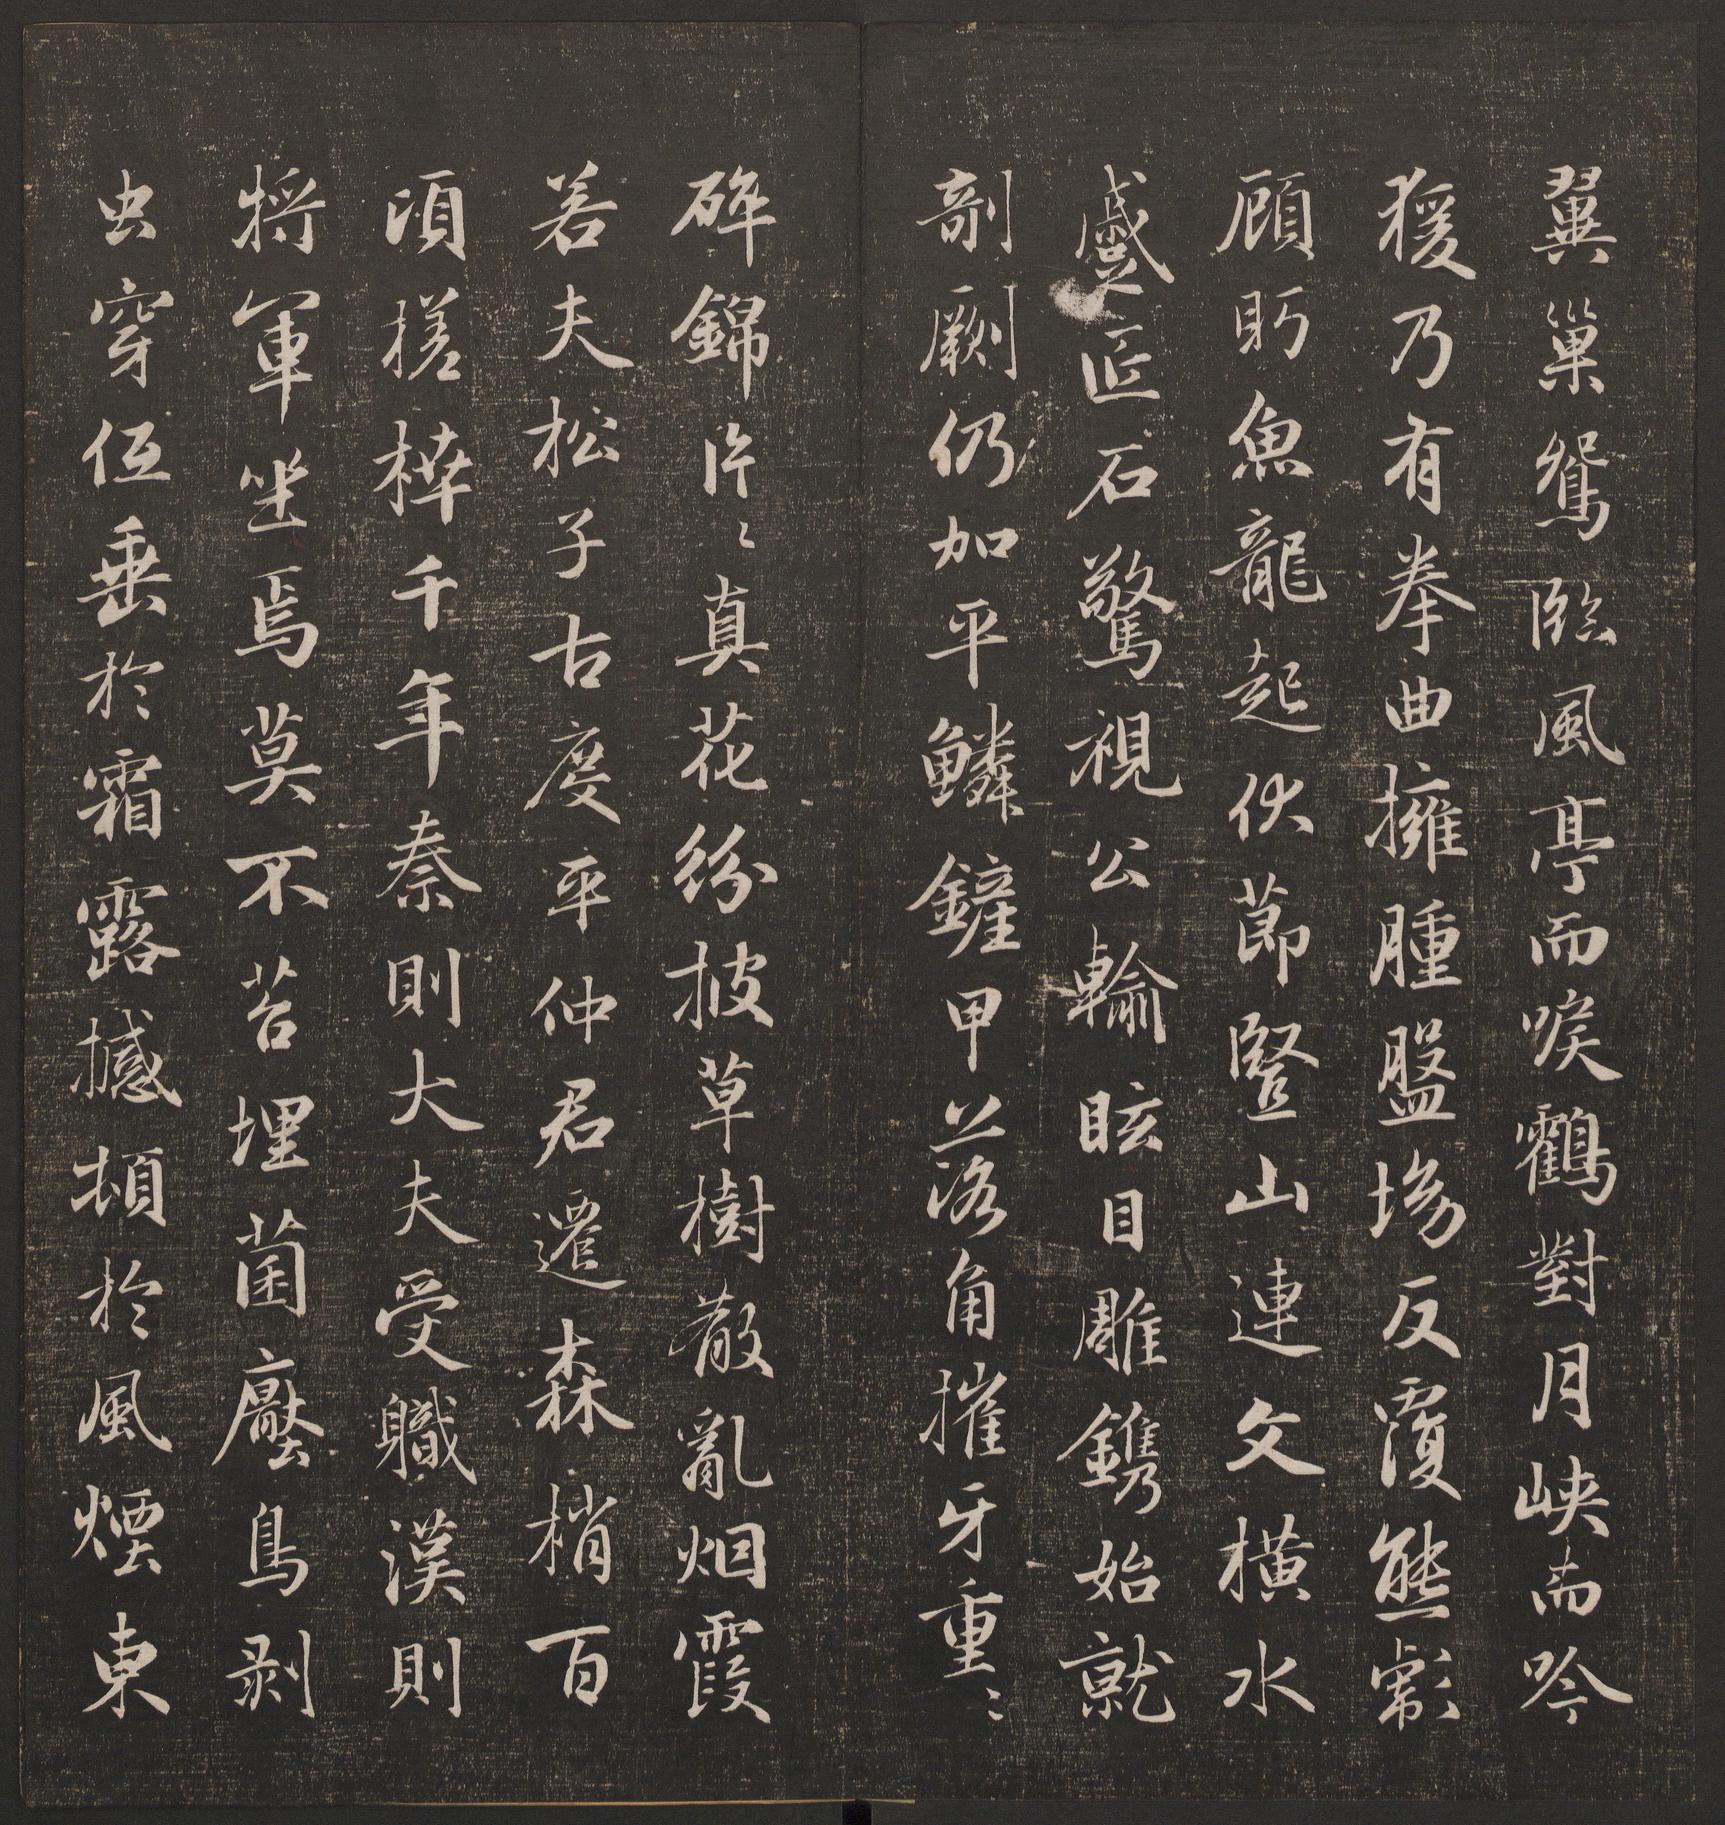 翼巢鴛臨風亭而唳鶴對月峽而吟
猨乃有拳曲擁腫盤坳反覆熊彪
顧眄魚龍起伏節豎山連文橫水
蹙匠石驚視公輸眩目雕鐫始就
剞劂仍加平鱗鏟甲落角摧牙重〻
碎錦片〻真花紛披草樹散亂烟霞
若夫松子古度平仲君遷森梢百
頃槎枿千年秦則大夫受職漢則
將軍坐焉莫不苔埋菌壓鳥剝
虫穿低垂於霜露撼頓於風煙東